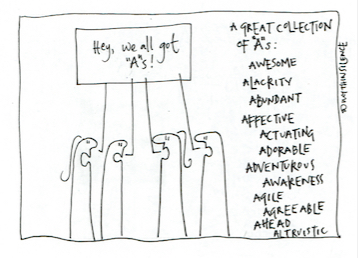 Hey, we all got
"A"s!
A GREAT COLLECTION
OF "A"s:
AWESOME
ALACRITY
ABUNDANT
AFFECTIVE
ACTUATING
ADORABLE
ADVENTUROUS
AWARENESS
AGILE
AGREEABLE
AHEAD
ALTRUISTIC